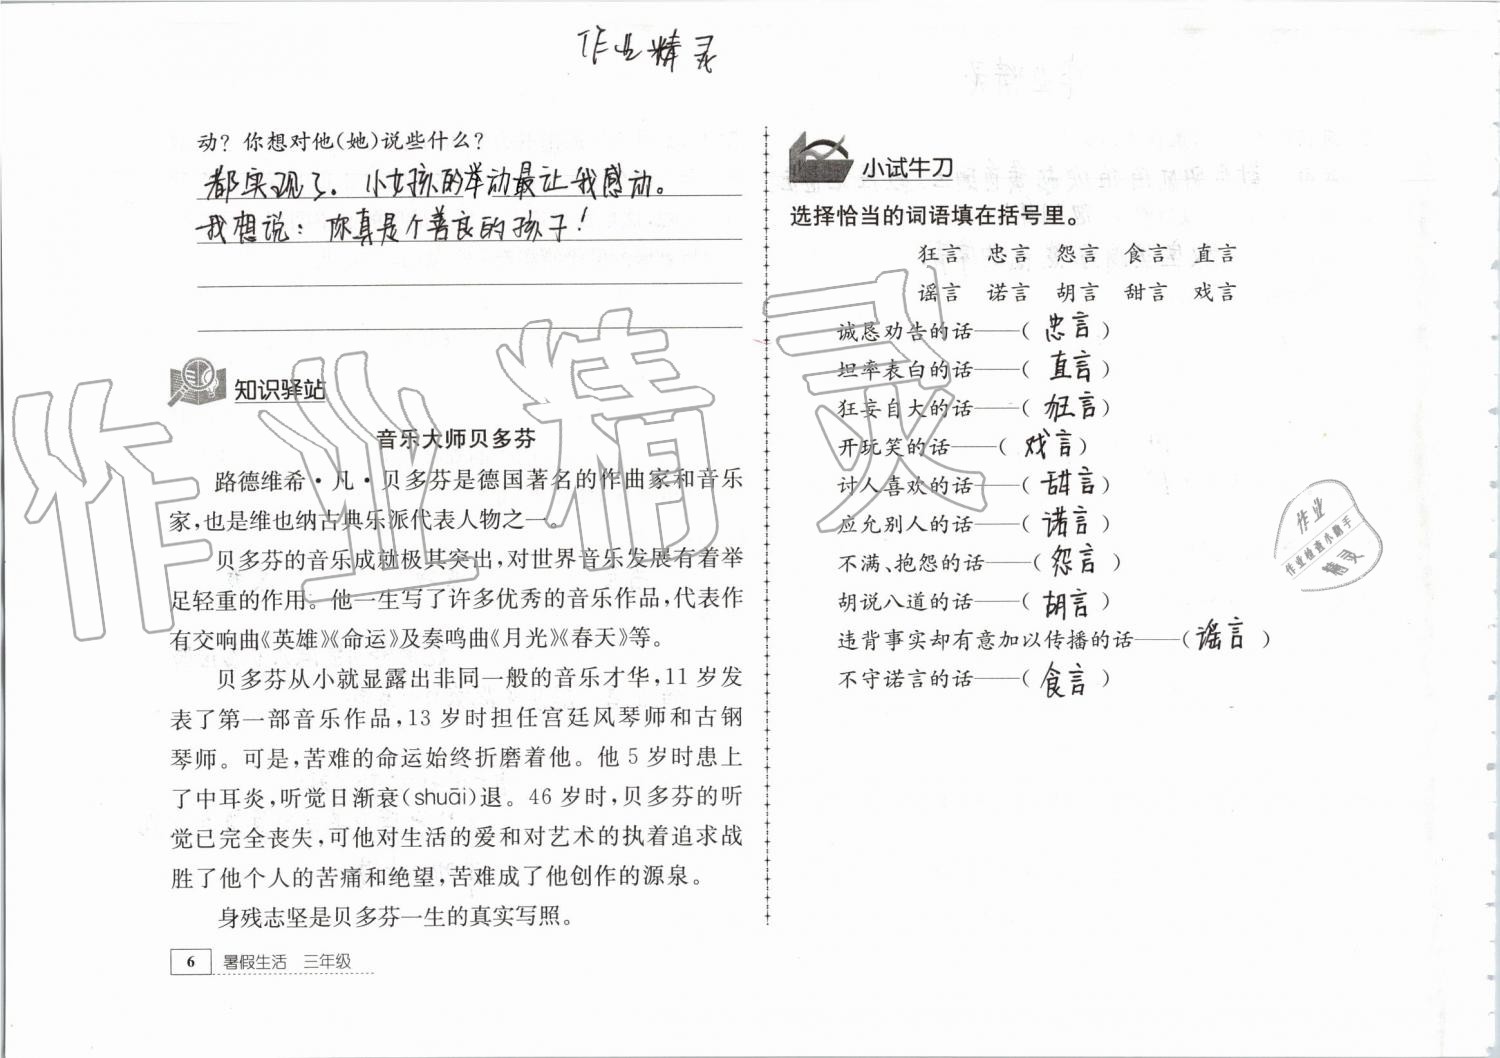 作业精灵
动？你想对他(她)说些什么？
都实现了. 小女孩的举动最让我感动。
我想说：你真是个善良的孩子！
知识驿站
音乐大师贝多芬
路德维希·凡·贝多芬是德国著名的作曲家和音乐
家,也是维也纳古典乐派代表人物之一。
贝多芬的音乐成就极其突出,对世界音乐发展有着举
足轻重的作用。他一生写了许多优秀的音乐作品,代表作
有交响曲《英雄》《命运》及奏鸣曲《月光》《春天》等。
贝多芬从小就显露出非同一般的音乐才华,11岁发
表了第一部音乐作品,13岁时担任宫廷风琴师和古钢
琴师。可是,苦难的命运始终折磨着他。他5岁时患上
了中耳炎,听觉日渐衰(shuāi)退。46岁时,贝多芬的听
觉已完全丧失,可他对生活的爱和对艺术的执着追求战
胜了他个人的苦痛和绝望,苦难成了他创作的源泉。
身残志坚是贝多芬一生的真实写照。
6 暑假生活 三年级
小试牛刀
选择恰当的词语填在括号里。
狂言 忠言 怨言 食言 直言
谣言 诺言 胡言 甜言 戏言
诚恳劝告的话——(忠言)
坦率表白的话——(直言)
狂妄自大的话——(狂言)
开玩笑的话——(戏言)
讨人喜欢的话——(甜言)
应允别人的话——(诺言)
不满、抱怨的话——(怨言)
胡说八道的话——(胡言)
违背事实却有意加以传播的话——(谣言)
不守诺言的话——(食言)
作业精灵
作业
作业检查小助手
精灵